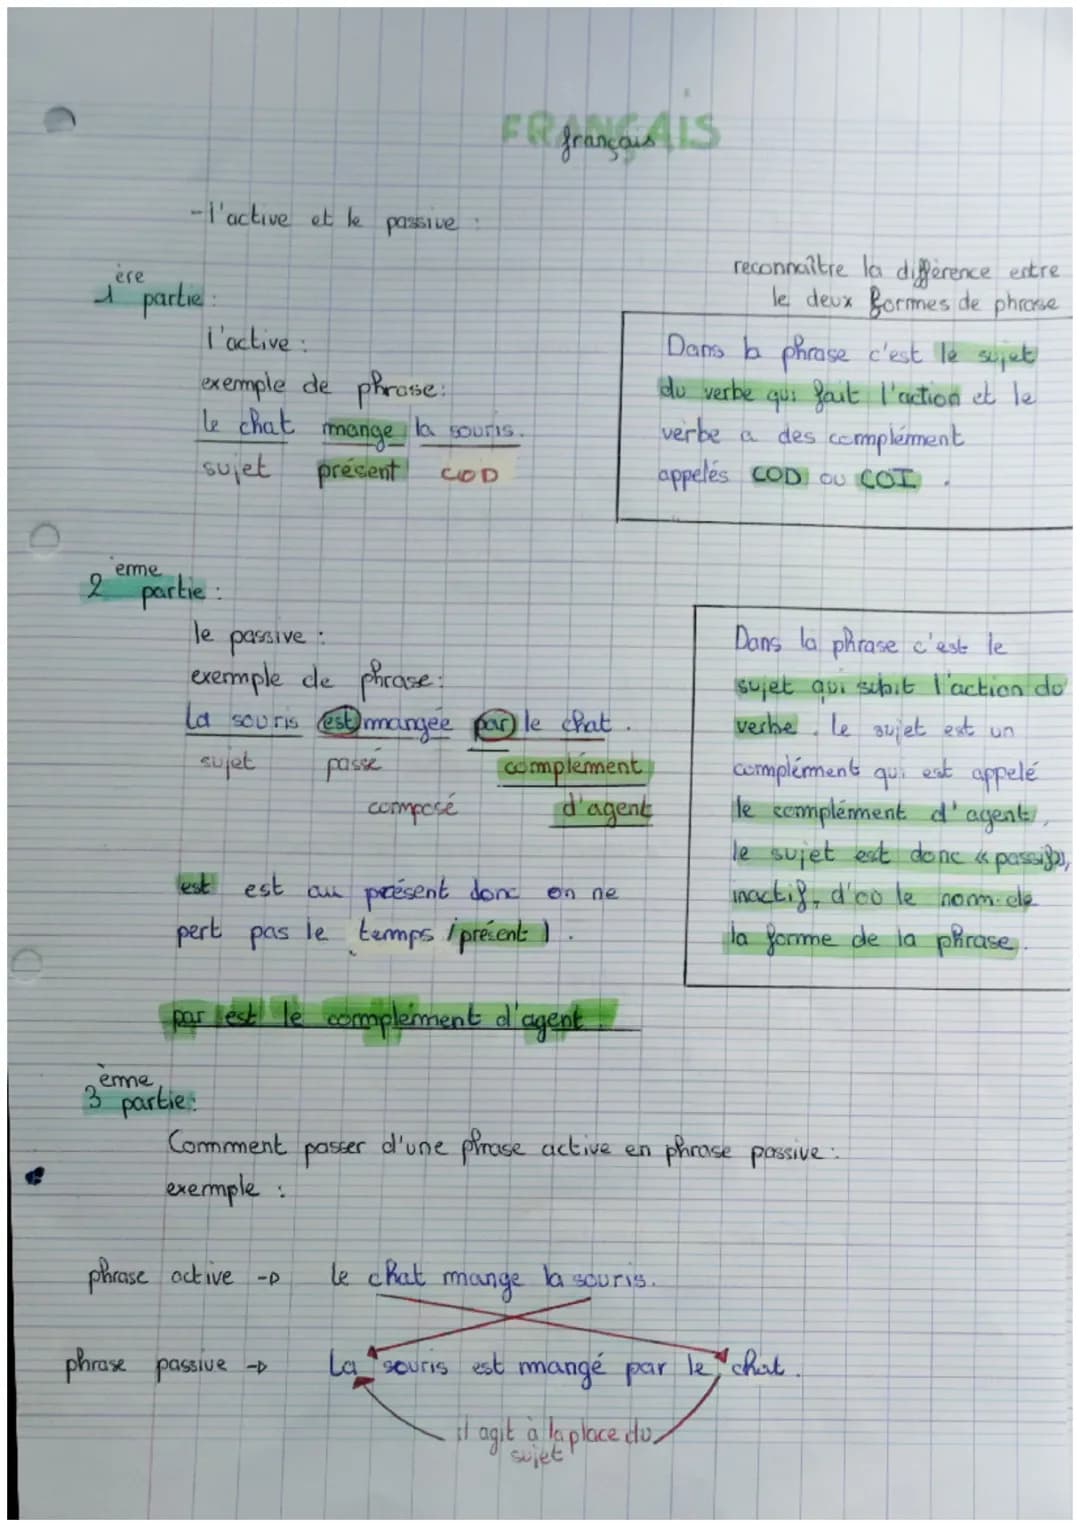 FRANÇAIS
français
- l'active et le passive :
1ère partie :
l'active :
exemple de phrase :
le chat mange la souris.
sujet présent COD
reconnaître la différence entre
le deux formes de phrase
Dans la phrase c'est le sujet
du verbe qui fait l'action et le
verbe a des complément
appelés COD ou COI .
2ème partie :
le passive :
exemple de phrase :
La souris est mangée par le chat .
sujet passé complément
composé d'agent
est est au présent donc on ne
pert pas le temps (présent) .
par est le complément d'agent .
Dans la phrase c'est le
sujet qui subit l'action du
verbe . le sujet est un
complément qui est appelé
le complément d'agent,
le sujet est donc « passif »,
inactif, d'où le nom de
la forme de la phrase .
3ème partie :
Comment passer d'une phrase active en phrase passive :
exemple :
phrase active -> le chat mange la souris.
phrase passive -> La souris est mangé par le chat .
il agit à la place du
sujet